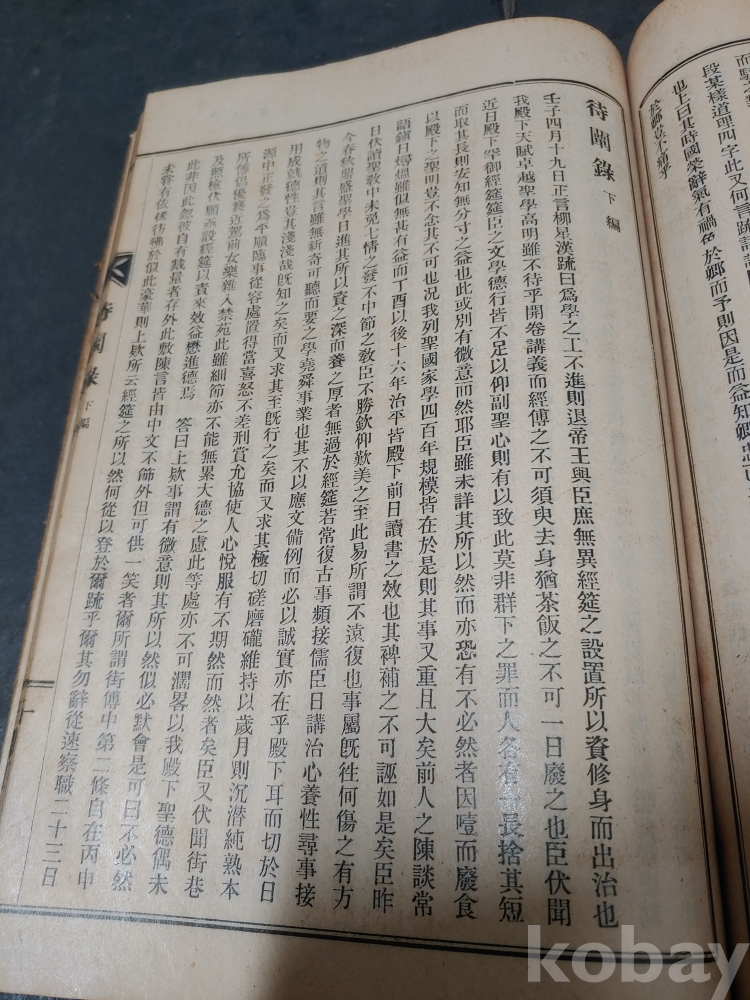 而
段某樣道理四字此又何言
也上曰其時國榮辭氣有禍色於鄕而予則因是而益知卿忠
於鄕豈不痛乎
待闡錄 下編
壬子四月十九日正言柳星漢疏曰爲學之工不進則退帝王與臣庶無異經筵之設置所以資修身而出治也
我殿下天賦卓越聖學高明雖不待乎開卷講義而經傳之不可須臾去身猶茶飯之不可一日廢之也臣伏聞
近日殿下罕御經筵筵臣之文學德行皆不足以仰副聖心則有以致此莫非群下之罪而人各有一長捨其短
而取其長則安知無分寸之益也此或別有微意而然耶臣雖未詳其所以然而亦恐有不必然者因噎而廢食
以殿下之聖明豈不念其不可也况我列聖國家學四百年規模皆在於是則其事又重且大矣前人之陳談常
語鎭日燖熅雖似無甚有益而丁酉以後十六年治平皆殿下前日讀書之效也其裨補之不可誣如是矣臣昨
日伏讀聖敎中未免七情之發不中節之敎臣不勝欽仰歎美之至此易所謂不遠復也事屬旣往何傷之有方
今春秋鼎盛聖學日進其所以資之深而養之厚者無過於經筵若常復古事頻接儒臣日講治心養性尋事接
物之道則其言雖無新奇可聽而要之學堯舜事業也其不以應文備例而必以誠實亦在乎殿下耳而切於日
用成就德性豈其淺淺哉旣知之矣而又求其至旣行之矣而又求其極切磋磨礲維持以歲月則沉潛純熟本
源中正發之爲平順臨事從容處置得當喜怒不差刑賞允協使人心悅服有不期然而然者矣臣又伏聞街巷
所傳倡優襲近駕前女樂雜入禁苑此雖細節亦不能無累大德之慮此等處亦不可濶畧以我殿下聖德偶未
及顧檢代願亟設經筵以責來效益懋進德焉 答曰上欵事謂有微意則其所以然似必默會是可曰不必然
此非因此愆彼自有裁量者存外此敷陳言皆由中文不篩外但可供一笑者爾所謂街傳中第二條自在丙申
未嘗有依俙彷彿於似此豪華則上欵所云經筵之所以然何從以登於爾疏乎爾其勿辭從速察職二十三日
待闡錄 下編
十
kobay